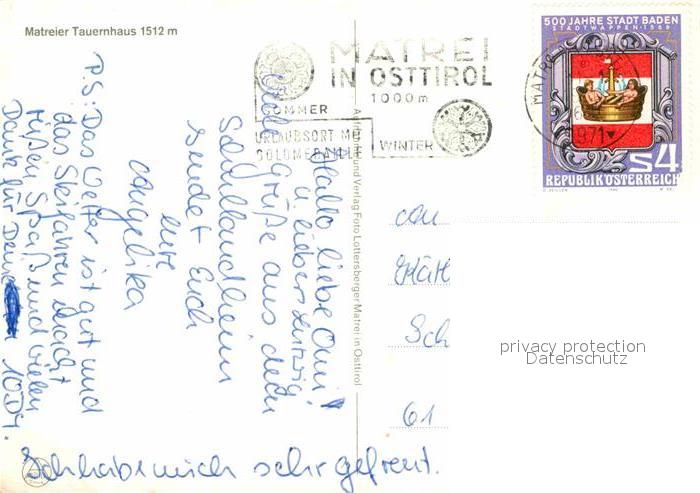 Matreier Tauernhaus 1512 m
MATREI
IN OSTTIROL
1000m
SOMMER
URLAUBSORT MIT
GOLDMEDAILLE
WINTER
500 JAHRE STADT BADEN
STADTWAPPEN 1566
S4
REPUBLIK ÖSTERREICH
MATRE
971
Hallo liebe Omi
u. lieber
viele Grüße aus dem
Schullandheim
sendet Euch
eure
Angelika
P.S: Das Wetter ist gut und
das Skifahren macht
riesen Spaß und vielen
Dank für Deine 10DM.
Ich habe mich sehr gefreut.
und Verlag Foto Lottersberger Matrei in Osttirol
an
Sch
61
privacy protection
Datenschutz